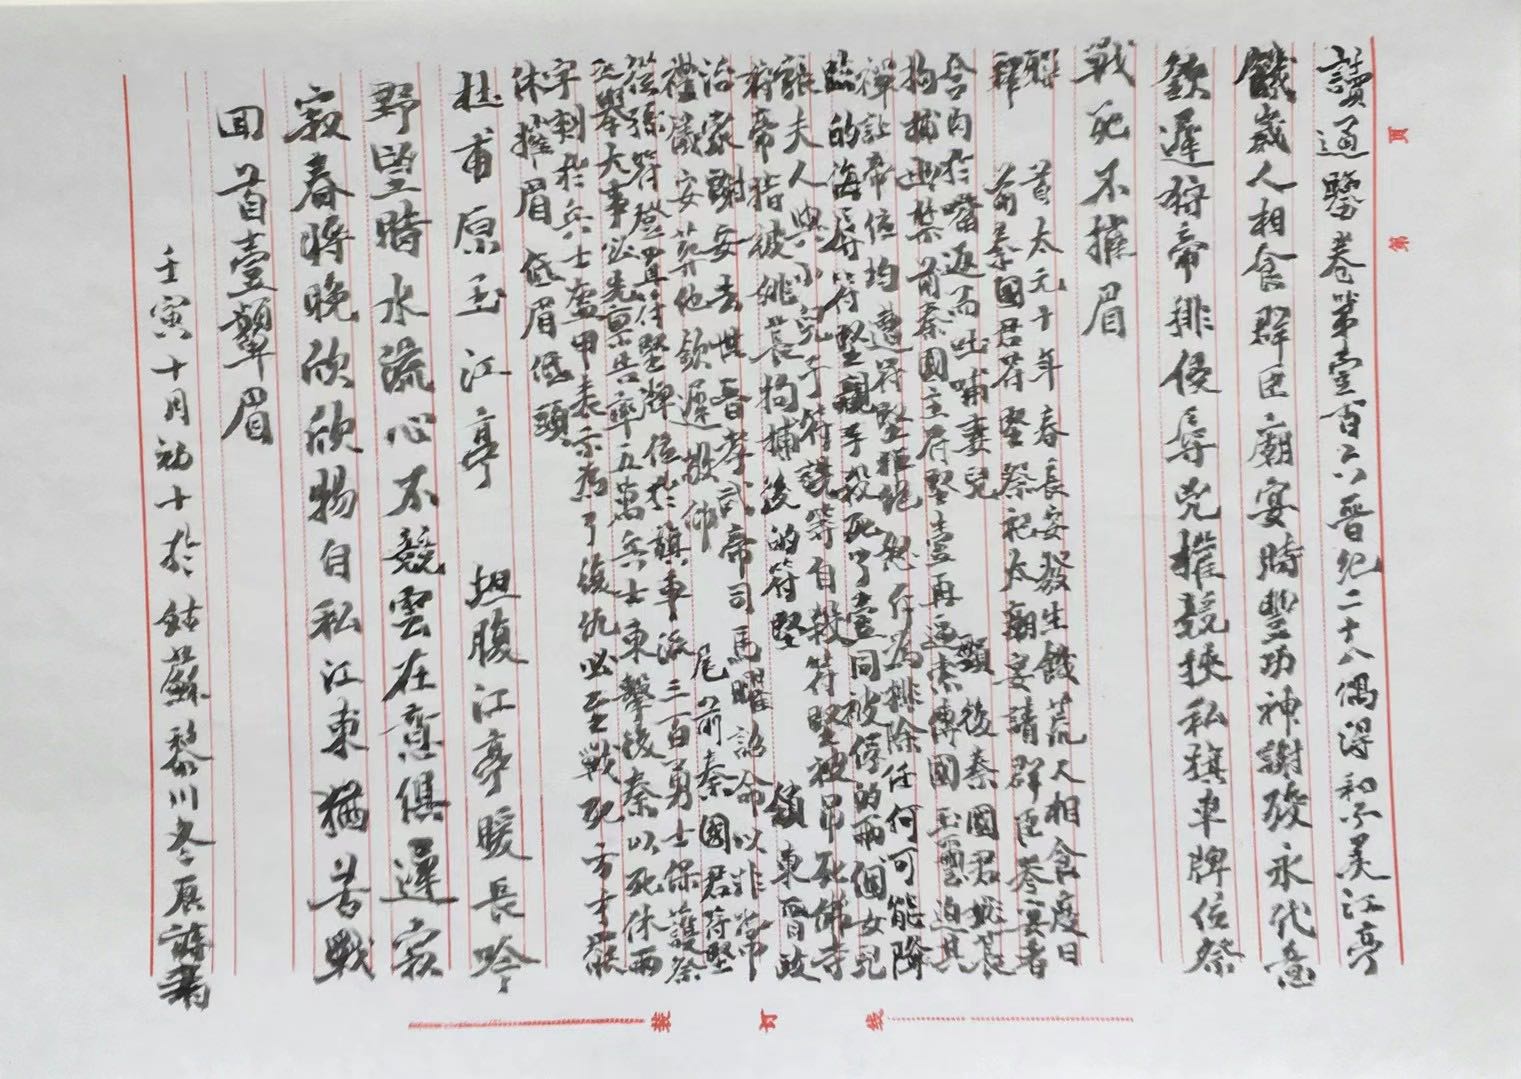 讀通鑒卷第壹百六晉紀二十八偶得和不美江亭
饑歲人相食群臣廟宴時豐功神謝發永代意
欽遲將帝排侵辱兇摧競挾私旗車牌位祭
戰死不摧眉
首太元十年春長安發生饑荒人相食度日
前秦國君苻堅祭祀太廟宴請群臣參宴者
含肉於嘴返而吐哺妻兒
頸後秦國君姚萇
拘捕前秦國主苻堅壹再逼索傳國玉璽迫其
禪讓帝位均遭苻堅拒絕
的侮辱苻堅親手殺死了壹同被俘的兩個女兒
張夫人與小兒子苻詵等自殺苻堅被吊死佛寺
將帝指被姚萇拘捕後的苻堅
頷東晉政
治家謝安去世晉孝武帝司馬曜詔命以非常
禮儀安葬他欽遲敬仰
尾前秦國君苻堅
從孫苻登置苻堅牌位於旗車派三百勇士保護祭
舉大事必先稟告率五萬兵士東擊後秦以死休兩
字刺於兵士盔甲表示為了復仇必至戰死方才罷
休摧眉低眉低頭
杜甫原玉江亭
坦腹江亭暖長吟
野望時水流心不競雲在意俱遲寂
寂春將晚欣欣物自私江東猶苦戰
回首壹顰眉
壬寅十月初十於姑蘇黎川冬辰